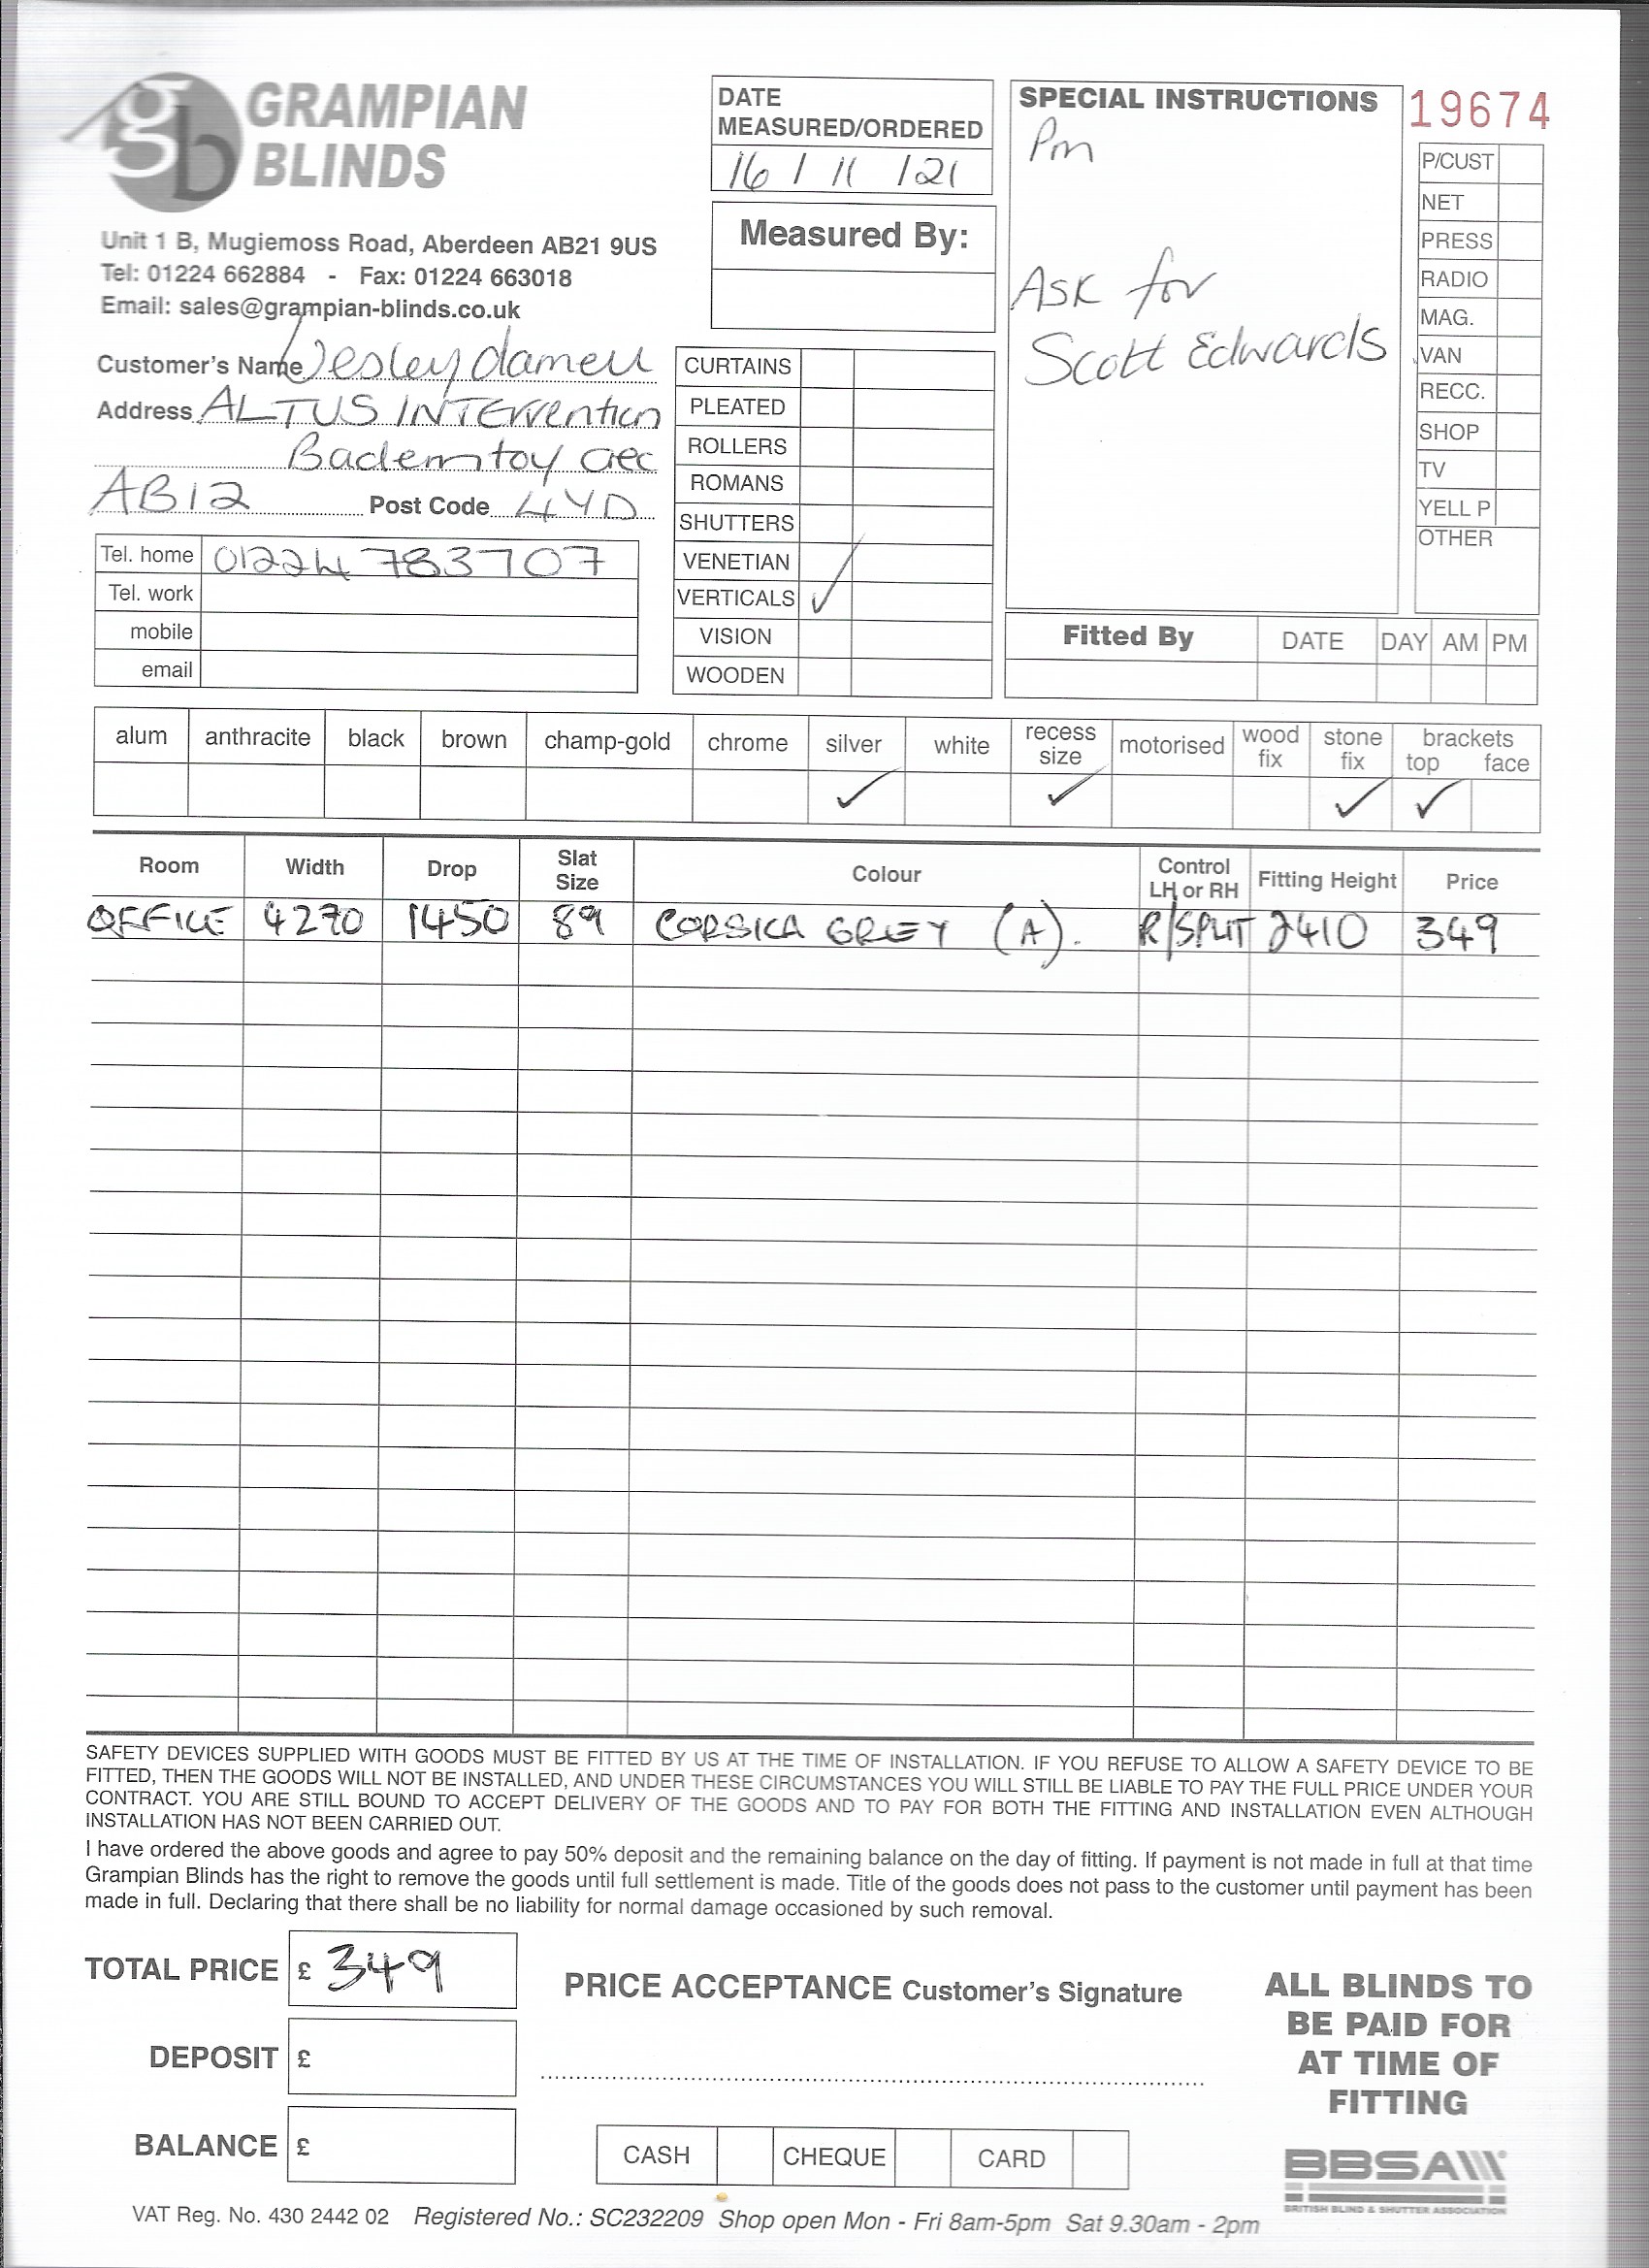 gb GRAMPIAN BLINDS
Unit 1 B, Mugiemoss Road, Aberdeen AB21 9US
Tel: 01224 662884 - Fax: 01224 663018
Email: sales@grampian-blinds.co.uk
Customer's Name Wesley
Address ALTUS INTErvention
Badentoy
AB12 Post Code 4YD
Tel. home 01224 783707
Tel. work
mobile
email
DATE
MEASURED/ORDERED
16 / 11 / 21
Measured By:
CURTAINS
PLEATED
ROLLERS
ROMANS
SHUTTERS
VENETIAN
VERTICALS ✓
VISION
WOODEN
SPECIAL INSTRUCTIONS
Pm
Ask for
Scott Edwards
19674
P/CUST
NET
PRESS
RADIO
MAG.
VAN
RECC.
SHOP
TV
YELL P
OTHER
Fitted By DATE DAY AM PM
alum anthracite black brown champ-gold chrome silver white recess size motorised wood fix stone fix brackets top face
✓ ✓ ✓ ✓
Room Width Drop Slat Size Colour Control LH or RH Fitting Height Price
OFFICE 4270 1450 89 CORSICA GREY (A). R/SPLIT 2410 349
SAFETY DEVICES SUPPLIED WITH GOODS MUST BE FITTED BY US AT THE TIME OF INSTALLATION. IF YOU REFUSE TO ALLOW A SAFETY DEVICE TO BE
FITTED, THEN THE GOODS WILL NOT BE INSTALLED, AND UNDER THESE CIRCUMSTANCES YOU WILL STILL BE LIABLE TO PAY THE FULL PRICE UNDER YOUR
CONTRACT. YOU ARE STILL BOUND TO ACCEPT DELIVERY OF THE GOODS AND TO PAY FOR BOTH THE FITTING AND INSTALLATION EVEN ALTHOUGH
INSTALLATION HAS NOT BEEN CARRIED OUT.
I have ordered the above goods and agree to pay 50% deposit and the remaining balance on the day of fitting. If payment is not made in full at that time
Grampian Blinds has the right to remove the goods until full settlement is made. Title of the goods does not pass to the customer until payment has been
made in full. Declaring that there shall be no liability for normal damage occasioned by such removal.
TOTAL PRICE £ 349
DEPOSIT £
BALANCE £
PRICE ACCEPTANCE Customer's Signature
CASH CHEQUE CARD
ALL BLINDS TO
BE PAID FOR
AT TIME OF
FITTING
BBSA
BRITISH BLIND & SHUTTER ASSOCIATION
VAT Reg. No. 430 2442 02 Registered No.: SC232209 Shop open Mon - Fri 8am-5pm Sat 9.30am - 2pm